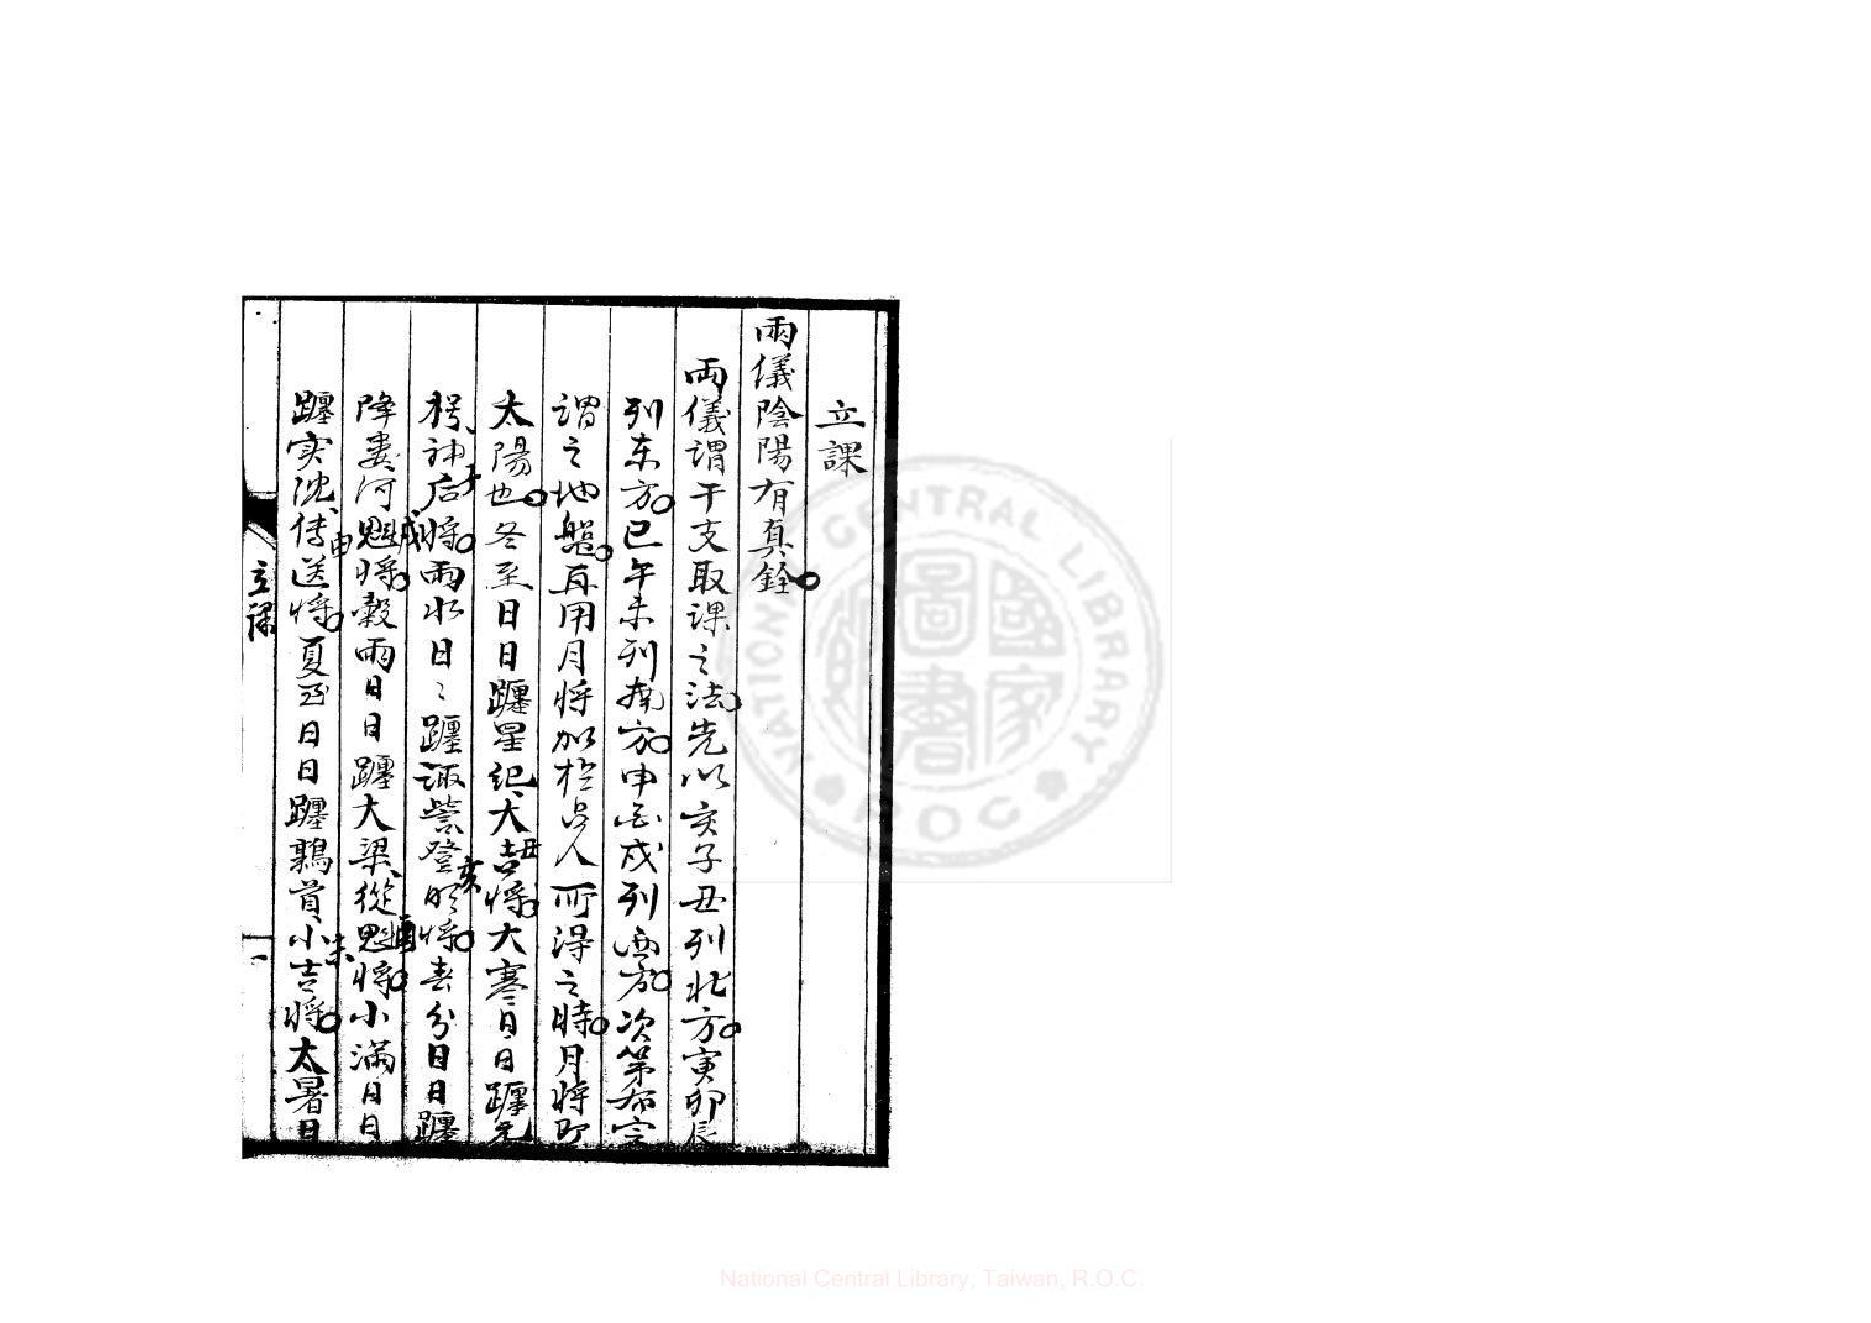 立課
兩儀陰陽有真銓
兩儀謂干支取課之法先以亥子丑列北方寅卯辰
列东方巳午未列南方申酉戌列西方次第布定
謂之地盤再用月将加於占人所得之時月将即
太陽也冬至日日躔星纪大吉丑将大寒日日躔元
枵神后子将雨水日〻躔诹訾登明亥将春分日日躔
降婁河魁戌将穀雨日日躔大梁從魁酉将小滿日日
躔实沈傳送申将夏至日日躔鶉首小吉未将太暑日
立課
一
國家圖書
NATIONAL CENTRAL LIBRARY
ROC
National Central Library, Taiwan, R.O.C.